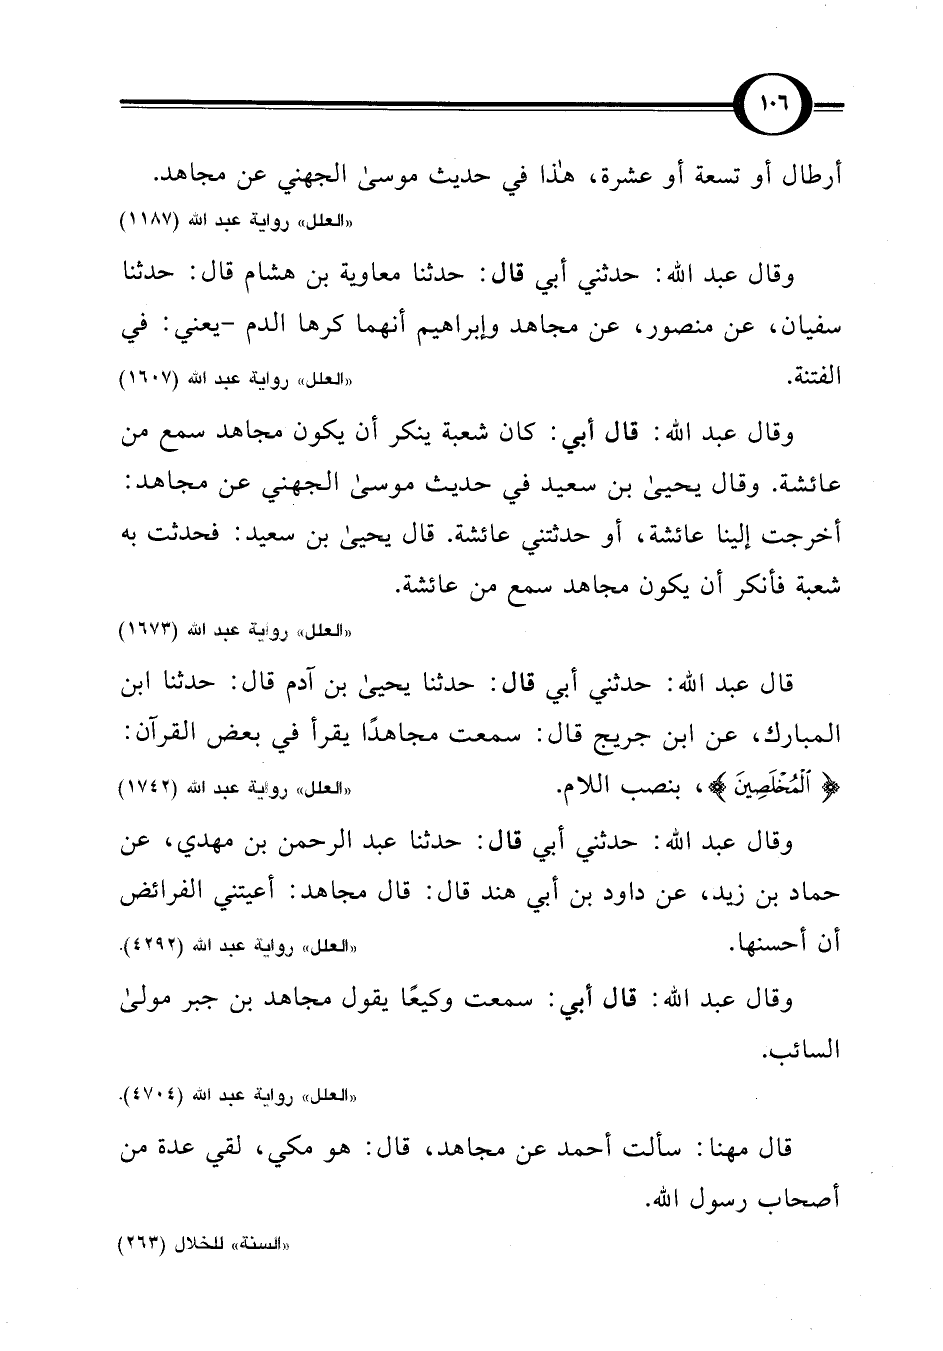 ١٠٦
أرطال أو تسعة أو عشرة، هذا في حديث موسىٰ الجهني عن مجاهد.
«العلل» رواية عبد الله (١١٨٧)
وقال عبد الله: حدثني أبي قال: حدثنا معاوية بن هشام قال: حدثنا
سفيان، عن منصور، عن مجاهد وإبراهيم أنهما كرها الدم -يعني: في
الفتنة. «العلل» رواية عبد الله (١٦٠٧)
وقال عبد الله: قال أبي: كان شعبة ينكر أن يكون مجاهد سمع من
عائشة. وقال يحيىٰ بن سعيد في حديث موسىٰ الجهني عن مجاهد:
أخرجت إلينا عائشة، أو حدثتني عائشة. قال يحيىٰ بن سعيد: فحدثت به
شعبة فأنكر أن يكون مجاهد سمع من عائشة.
«العلل» رواية عبد الله (١٦٧٣)
قال عبد الله: حدثني أبي قال: حدثنا يحيىٰ بن آدم قال: حدثنا ابن
المبارك، عن ابن جريج قال: سمعت مجاهدًا يقرأ في بعض القرآن:
﴿ٱلْمُخْلَصِينَ﴾، بنصب اللام. «العلل» رواية عبد الله (١٧٤٢)
وقال عبد الله: حدثني أبي قال: حدثنا عبد الرحمن بن مهدي، عن
حماد بن زيد، عن داود بن أبي هند قال: قال مجاهد: أعيتني الفرائض
أن أحسنها. «العلل» رواية عبد الله (٤٢٩٢).
وقال عبد الله: قال أبي: سمعت وكيعًا يقول مجاهد بن جبر مولىٰ
السائب.
«العلل» رواية عبد الله (٤٧٠٤).
قال مهنا: سألت أحمد عن مجاهد، قال: هو مكي، لقي عدة من
أصحاب رسول الله.
«السنة» للخلال (٢٦٣)